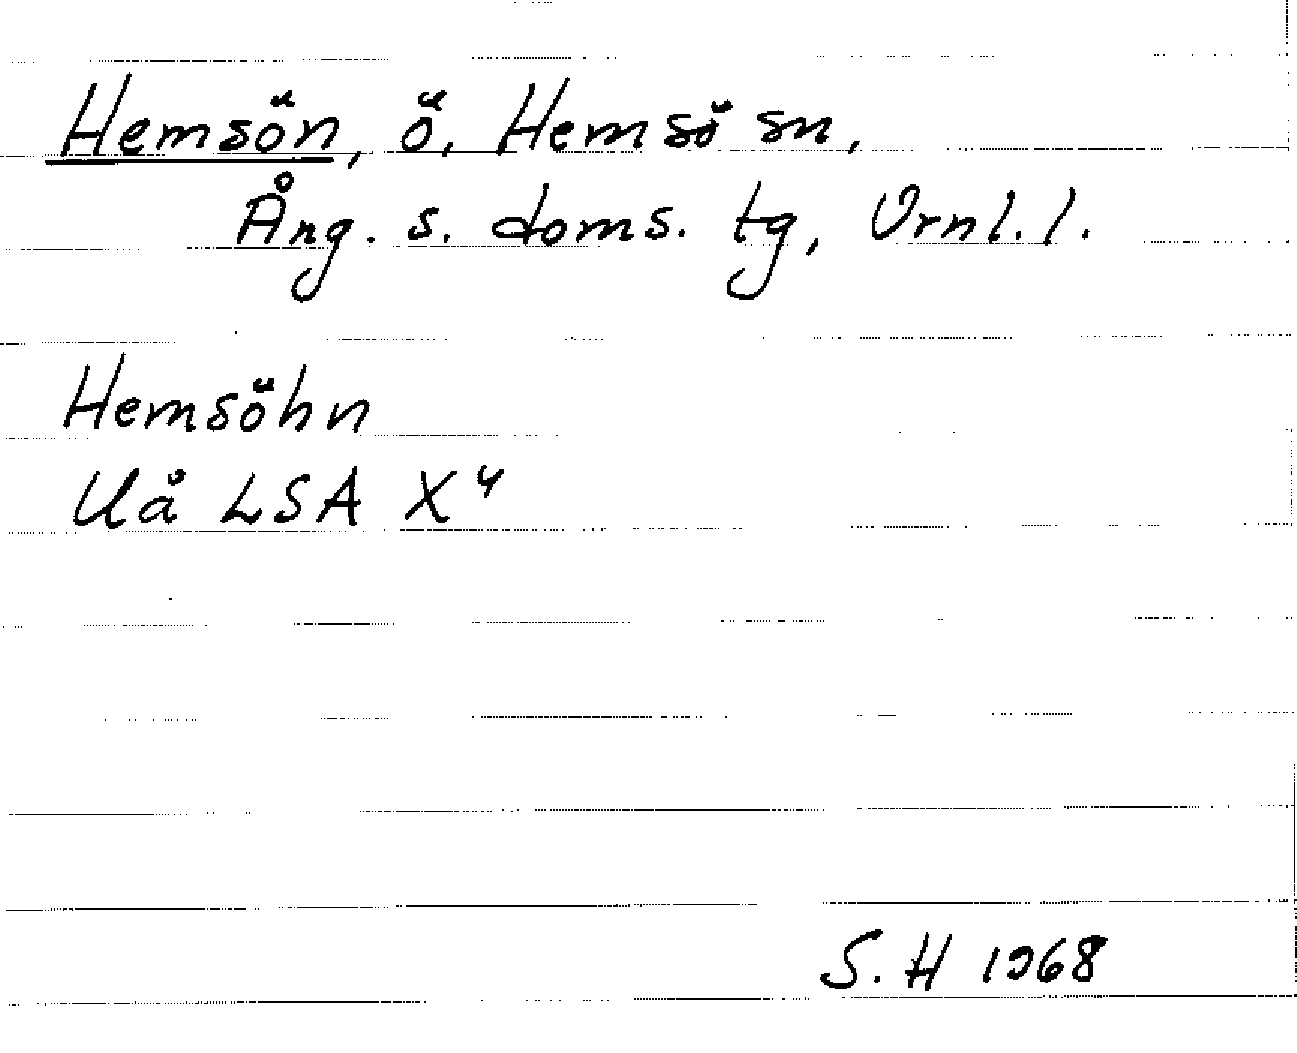 Hemsön, ö, Hemsö sn,
Ång. s. doms. tg, Vrnl. l.
Hemsöhn
Uå LSA X 4
S. H 1968